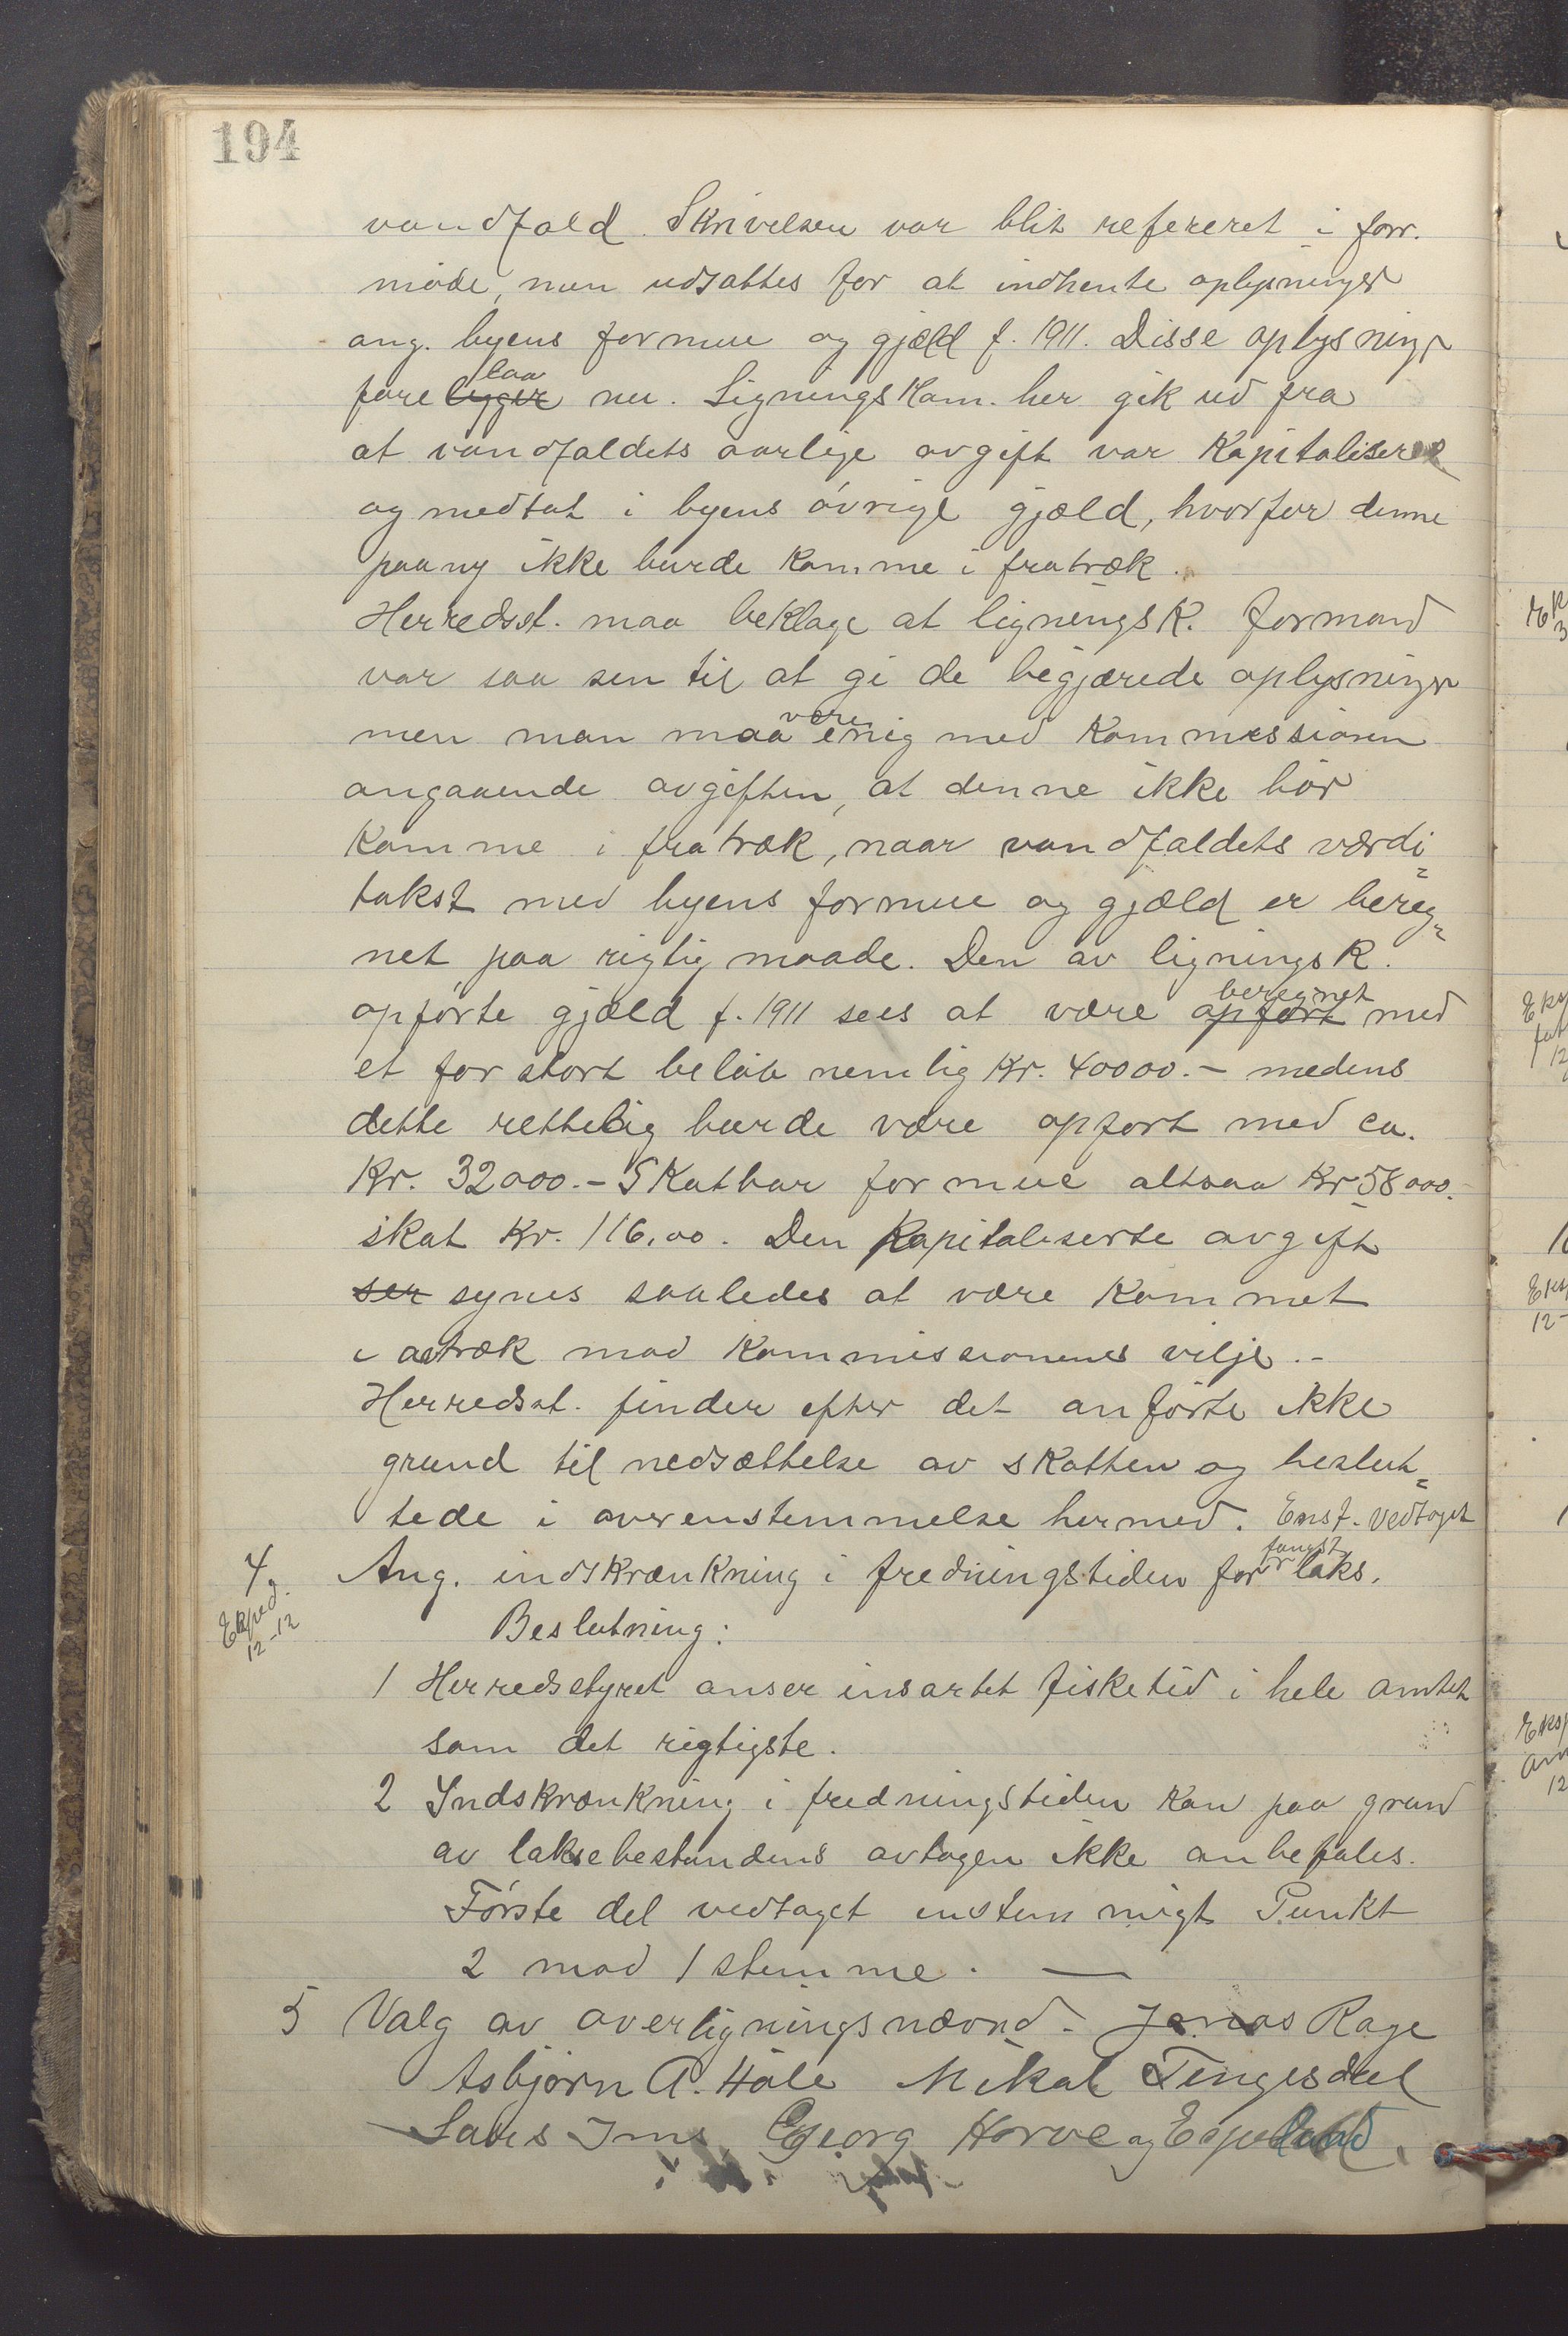 194
vandfald. Skrivelsen var blit refereret i forr.
møde, men udsattes for at indhente oplysninger
ang. byens formue og gjæld f. 1911. Disse oplysninger
forelaa
ligger nu. Ligningskom. her gik ud fra
at vandfaldets aarlige avgift var kapitaliseret
og medtat i byens øvrige gjæld, hvorfor denne
paany ikke burde komme i fratræk.
Herredsst. maa beklage at ligningsk. formand
var saa sen til at gi de begjærede oplysninger
men man maa være enig med kommissionen
angaaende avgiften, at denne ikke bør
komme i fratræk, naar vandfaldets værdi=
takst med byens formue og gjæld er bereg=
net paa rigtig maade. Den av ligningsk.
opførte gjæld f. 1911 sees at være opført beregnet med
et for stort beløb nemlig Kr. 40000.- medens
dette rettelig burde være opført med ca.
Kr. 32000.- Skatbar formue altsaa Kr 58000.-
skat Kr. 116,00. Den kapitaliserte avgift
ser synes saaledes at være kommet
i avtræk mod kommissionens vilje.-
Herredsst. finder efter det anførte ikke
grund til nedsættelse av skatten og beslut=
tede i overenstemmelse hermed. Enst. vedtaget
4 Ang. indskrænkning i fredningstiden for fangst laks.
Eksped.
12-12
Beslutning:
1 Herredsstyret anser ensartet fisketid i hele amtet
som det rigtigste.
2 Indskrænkning i fredningstiden kan paa grund
av laksebestandens avtagen ikke anbefales.
Første del vedtaget enstemmigt Punkt
2 mod 1 stemme. —
5 Valg av overligningsnævnd. Jonas Rage
Asbjørn A. Håle Mikal Tengesdal
Lars Ims Georg Horve og Espeland.